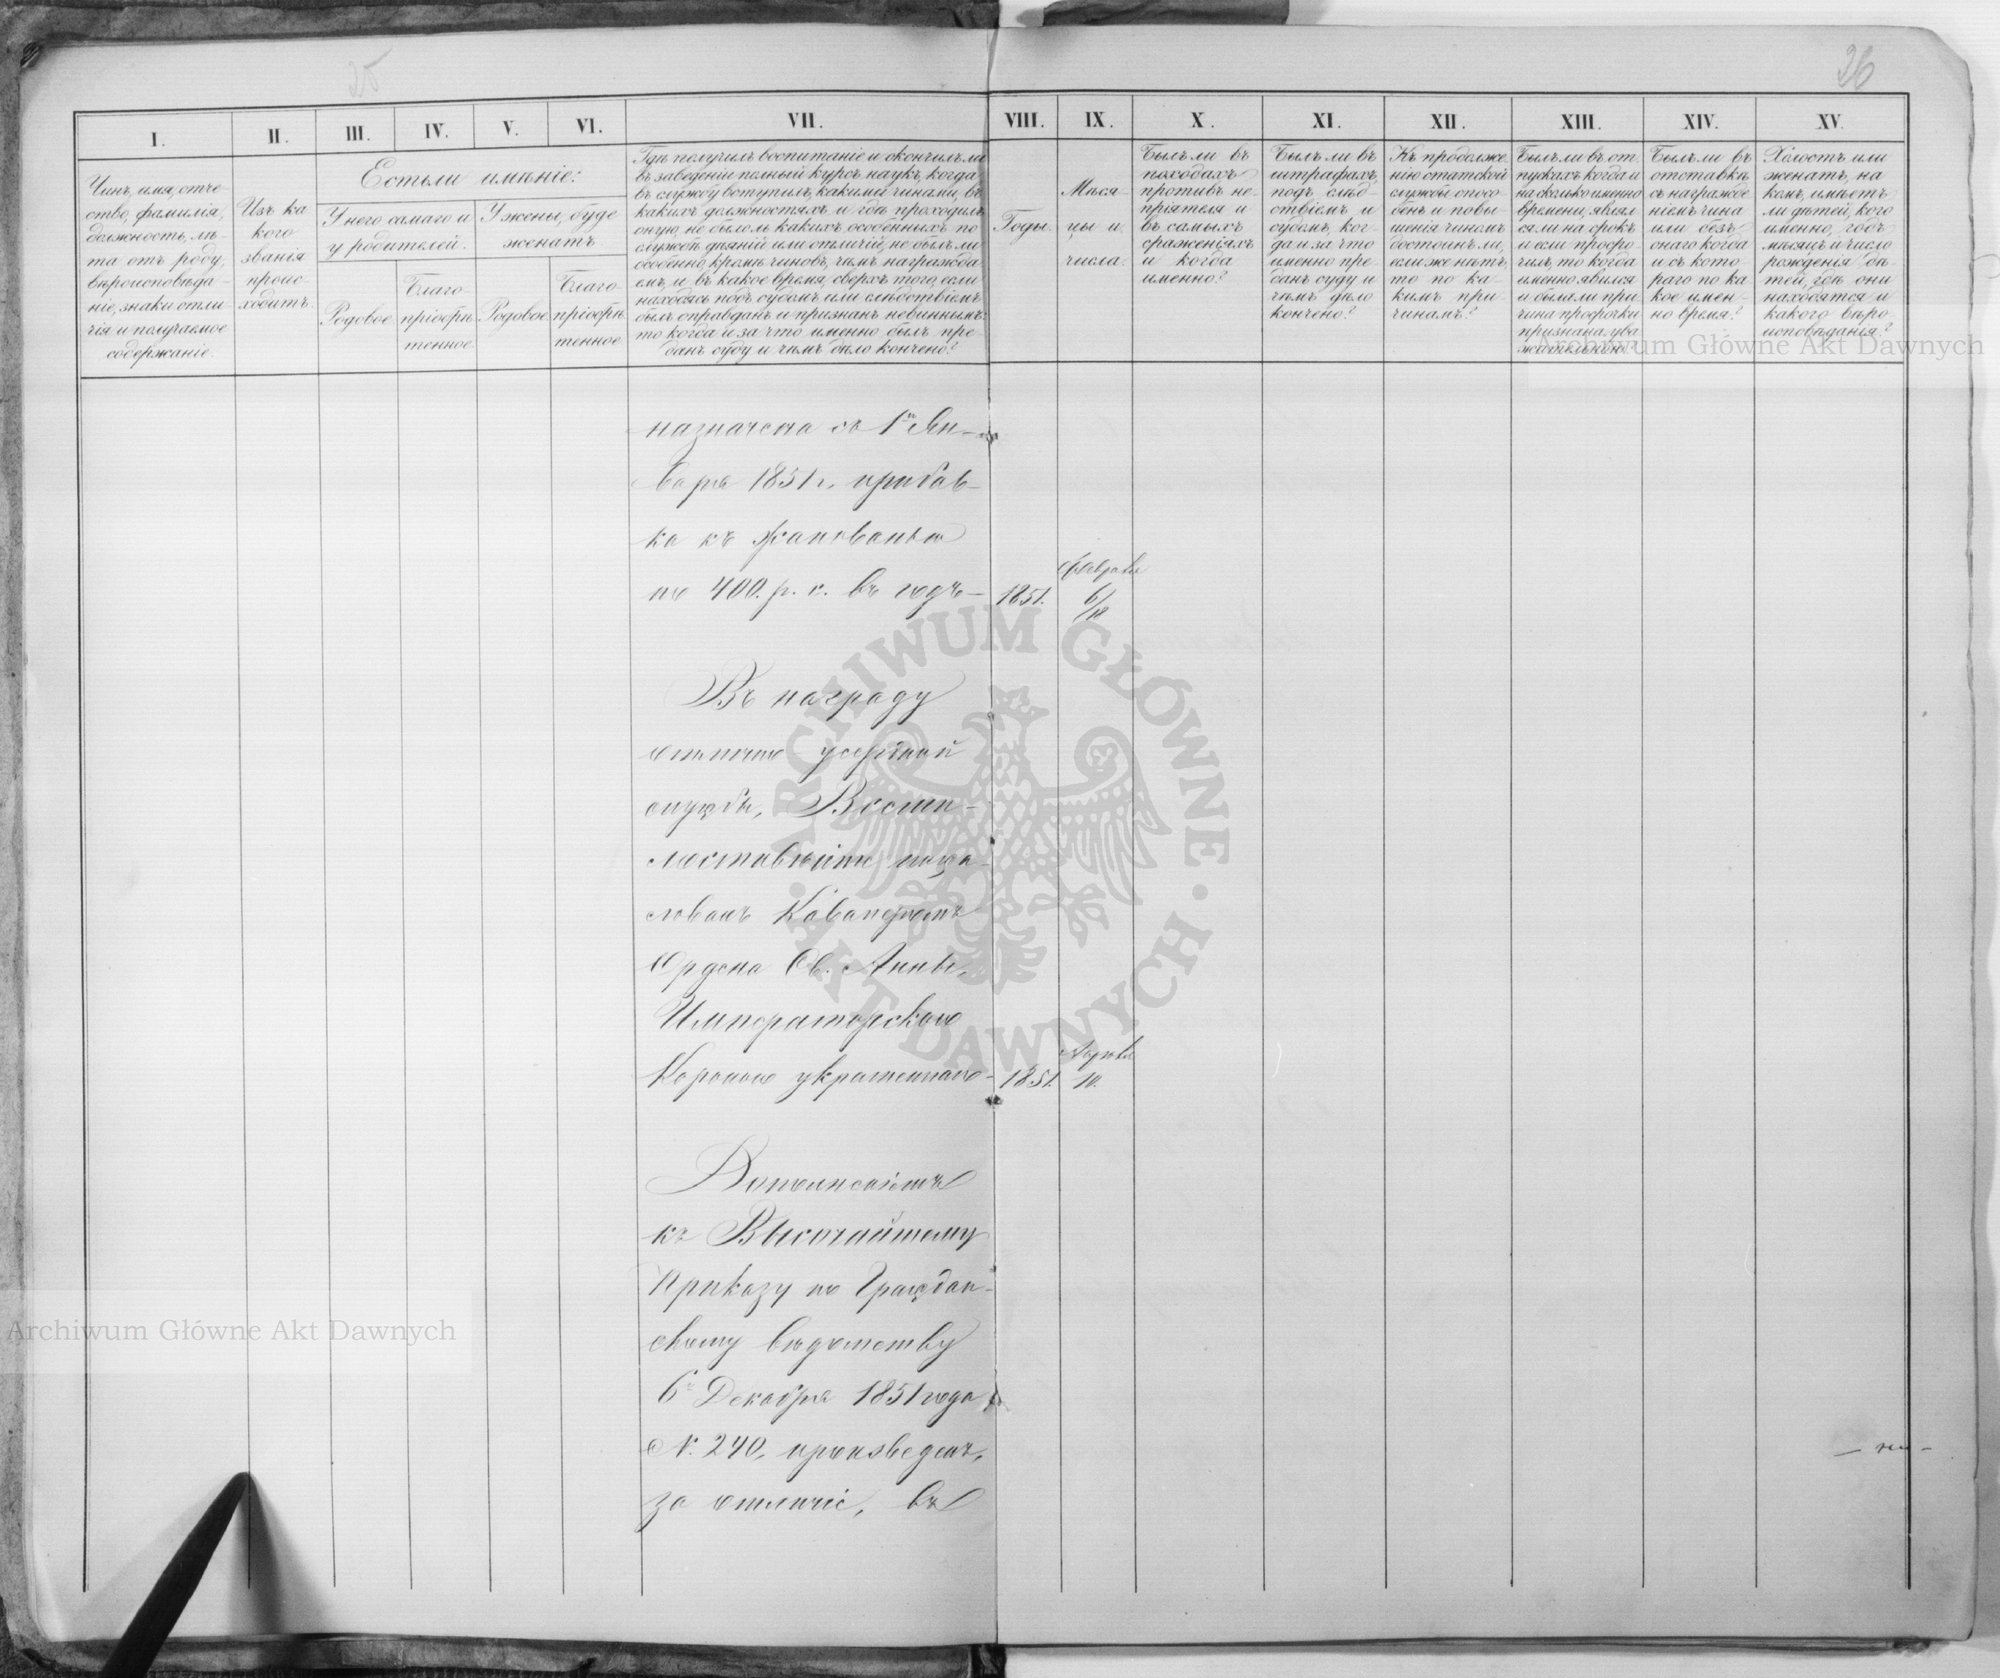 25
26
I.
II.
III.
IV.
V.
VI.
VII.
VIII.
IX.
X.
XI.
XII.
XIII.
XIV.
XV.
Чинъ, имя, отче-
ство, фамилія,
должность, лѣ-
та отъ роду,
вѣроисповѣда-
ніе, знаки отли-
чія и получаемое
содержаніе.
Изъ ка
кого
званія
проис-
ходитъ.
Естьли имѣніе:
У него самаго и
у родителей.
У жены, буде
женатъ
Родовое
Благо-
пріобрѣ
тенное
Родовое
Благо-
пріобрѣ
тенное
Гдѣ получилъ воспитаніе и окончилъ ли
въ заведеніи полный курсъ наукъ, когда
въ службу вступилъ, какими чинами, въ
какихъ должностяхъ и гдѣ проходилъ
оную, не было ль какихъ особенныхъ по
службѣ дѣяній или отличій, не былъ ли
особенно, кромѣ чиновъ, чѣмъ награжда
емъ, и въ какое время, сверхъ того, если
находясь подъ судомъ или слѣдствіемъ
былъ оправданъ и признанъ невиннымъ:
то когда и за что именно былъ пре-
данъ суду и чѣмъ дѣло кончено?
Годы.
Мѣся-
цы и
числа.
Былъ ли въ
походахъ
противъ не-
пріятеля и
въ самыхъ
сраженіяхъ
и когда
именно?
Былъ ли въ
штрафахъ,
подъ слѣд-
ствіемъ и
судомъ, ког-
да и за что
именно пре-
данъ суду и
чѣмъ дѣло
кончено?
Къ продолже-
нію статской
службы спосо-
бенъ и повы-
шенія чиномъ
достоинъ ли,
если же нѣтъ,
то по ка-
кимъ при-
чинамъ?
Былъ ли въ от-
пускахъ когда и
на сколько именно
времени, являл
ся ли на срокъ
и если просро-
чилъ, то когда
именно явился
и была ли при
чина просрочки
признана ува
жительною?
Былъ ли въ
отставкѣ
съ награжде
ніемъ чина
или безъ
онаго когда
и съ кото-
раго по ка
кое имен-
но время?
Холостъ или
женатъ, на
комъ, имѣетъ
ли дѣтей, кого
именно, годъ
мѣсяцъ и число
рожденія дѣ-
тей, гдѣ они
находятся и
какого вѣро-
исповѣданія?
назначена съ 1го Ян-
варя 1851 г. прибав-
ка къ жалованью
по 400. р. с. въ годъ- 1851. Февраля 6/18
Въ награду
отлично усердной
службы, Всеми-
лостивѣйше пожа-
лованъ Кавалеромъ
Ордена Св. Анны,
Императорскою
Короною украшеннаго- 1851. Апрѣля 10.
Дополненіемъ
къ Высочайшему
Приказу по Граждан-
скому вѣдомству
6го Декабря 1851 года
№. 240, произведенъ,
за отличіе, въ
Archiwum Główne Akt Dawnych
Archiwum Główne Akt Dawnych
ARCHIWUM GŁÓWNE · AKT DAWNYCH ·